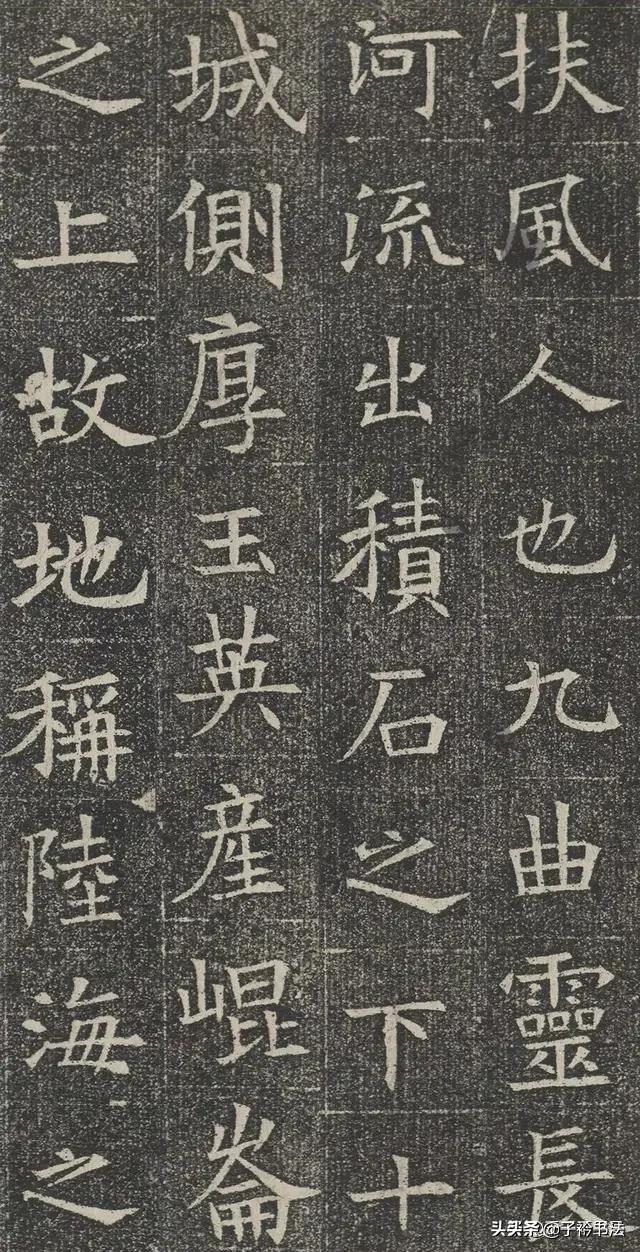 扶風人也九曲靈長
河流出積石之下十
城側厚玉英産崐崙
之上故地稱陸海之
头条@子衿书法